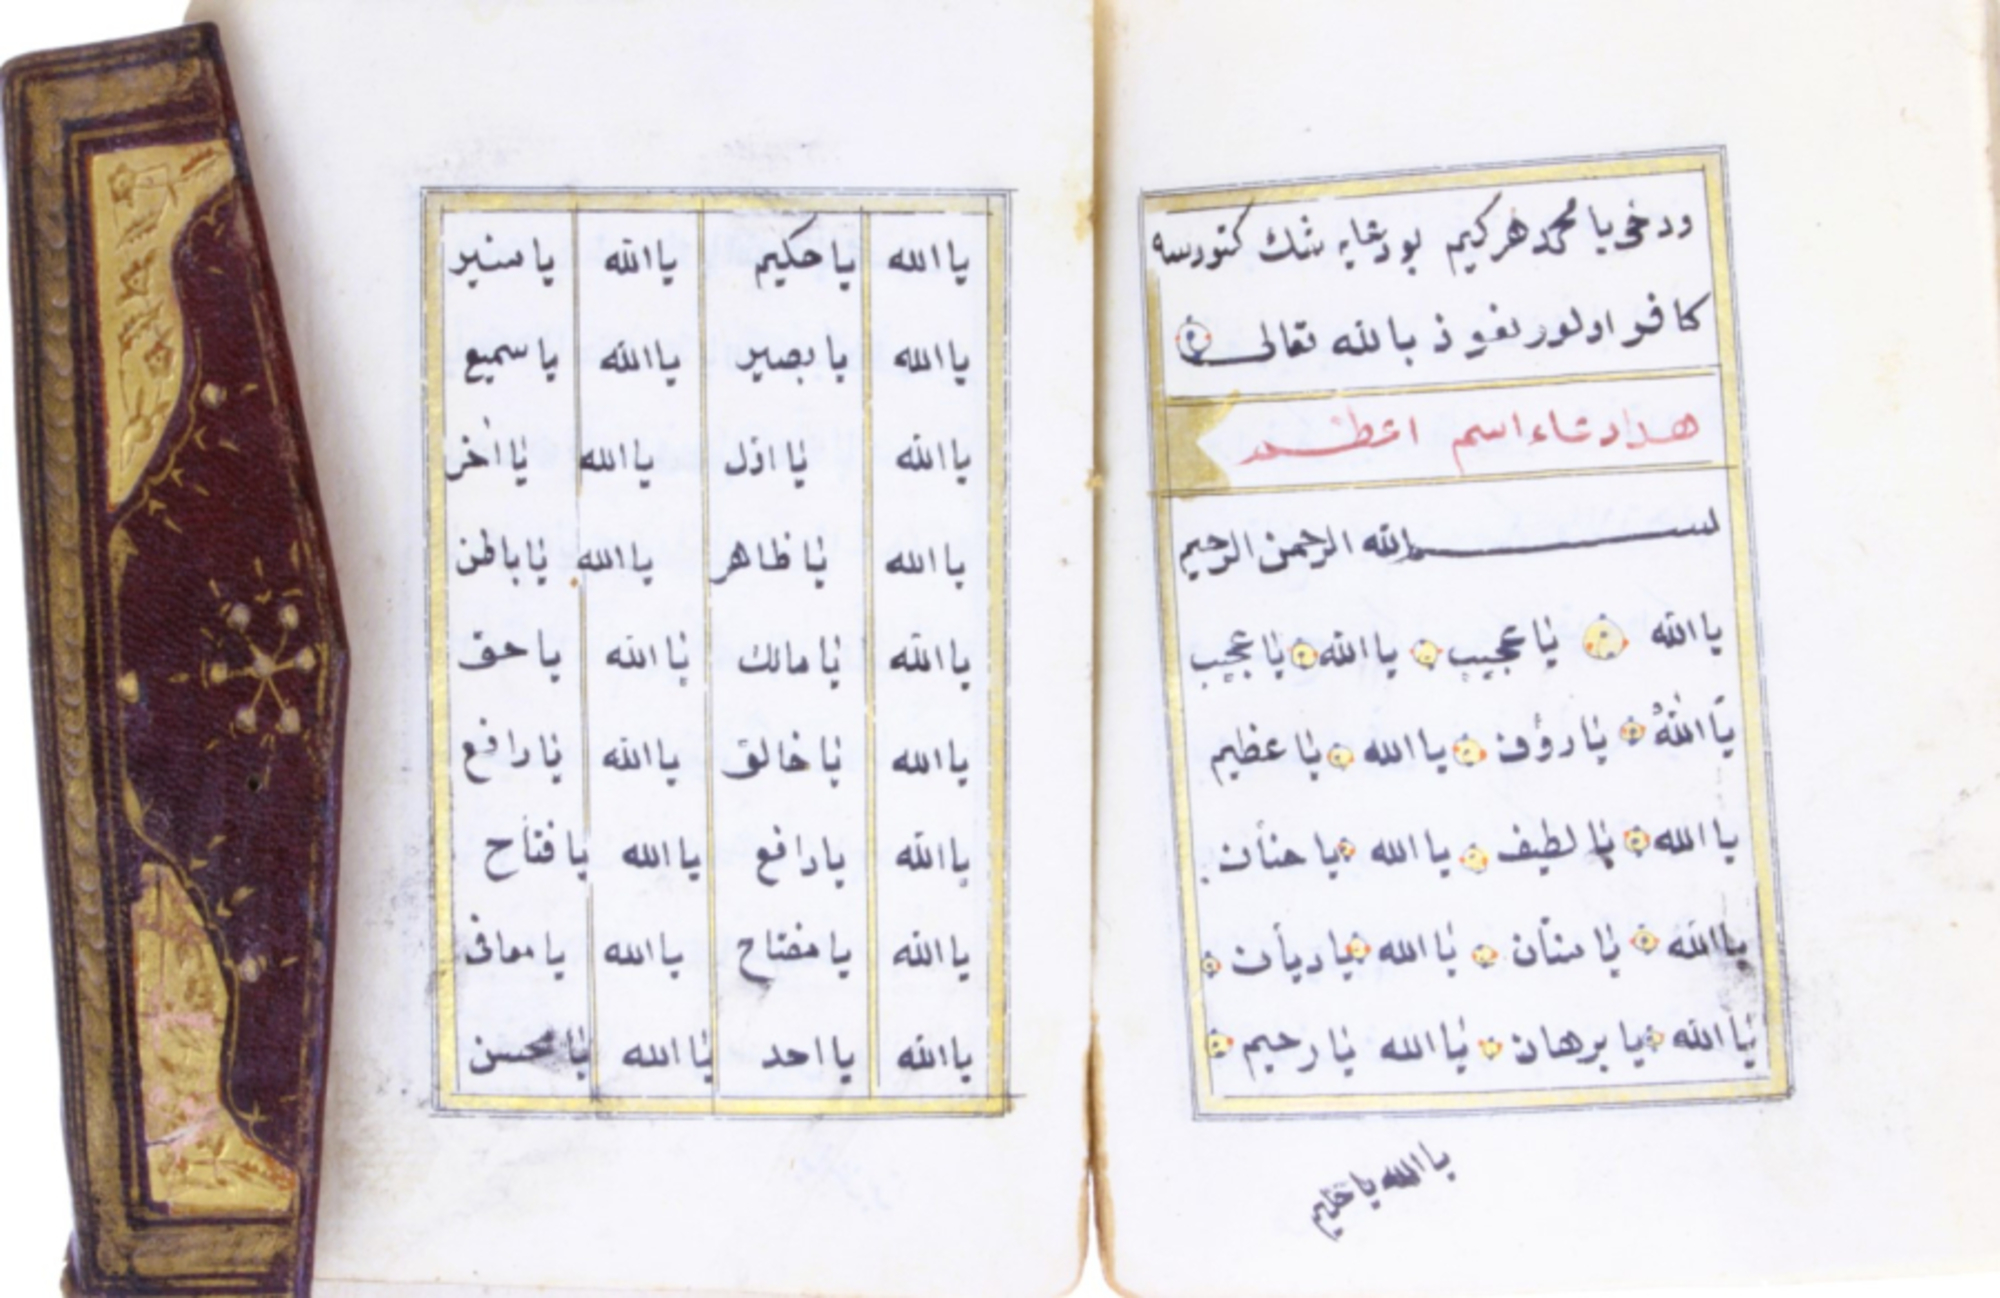 ودخی یا محمد هر کیم بو دعایه شك کتورسه
کافر اولور نعوذ بالله تعالی
هذا دعاء اسم اعظم
بسم الله الرحمن الرحيم
یا الله یا عجیب یا الله یا عجیب
یا اللهُ یا رؤف یا الله یا عظیم
یا الله یا لطیف یا الله یا حنان
یا الله یا منان یا الله یا دیان
یا الله یا برهان یا الله یا رحیم
یا الله یا حکیم
یا الله یا حکیم یا الله یا ستیر
یا الله یا بصیر یا الله یا سمیع
یا الله یا اول یا الله یا اخر
یا الله یا ظاهر یا الله یا باطن
یا الله یا مالك یا الله یا حق
یا الله یا خالق یا الله یا رافع
یا الله یا رافع یا الله یا فتاح
یا الله یا مفتاح یا الله یا معافی
یا الله یا احد یا الله یا محسن